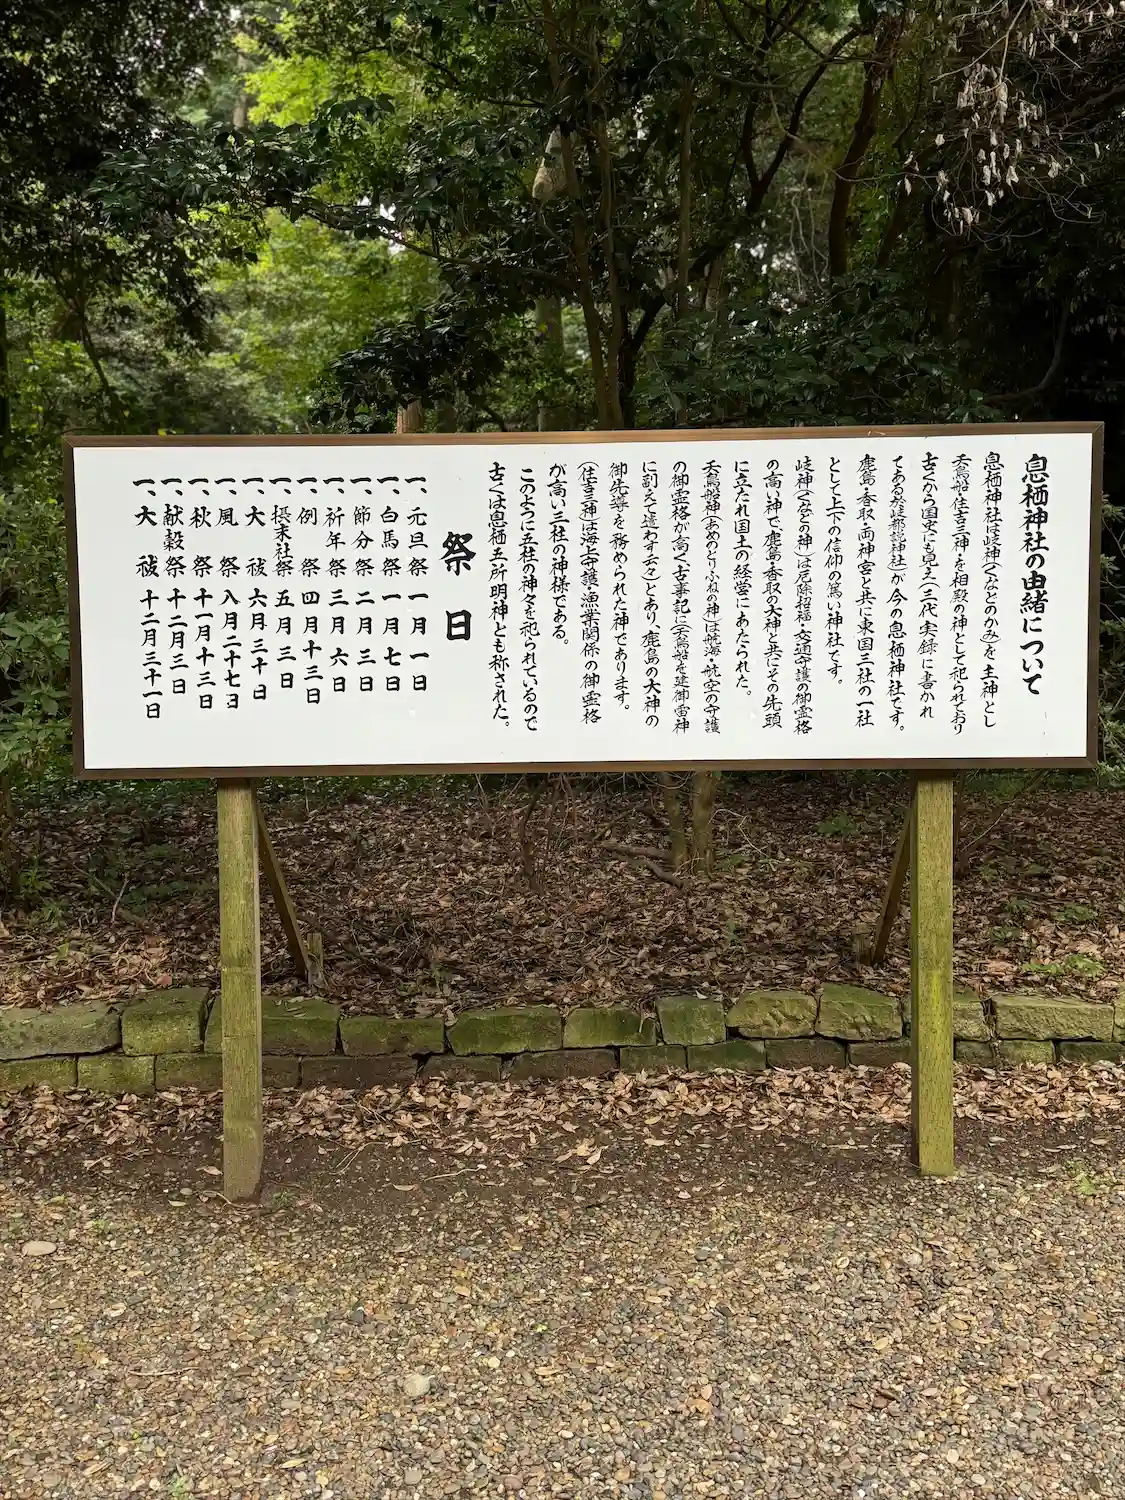 息栖神社の由緒について
息栖神社は岐神(くなどのかみ)を主神とし
天鳥船・住吉三神を相殿の神として祀られており
古くから国史にも見え(三代実録に書かれ
てある於岐都説神社)が今の息栖神社です。
鹿島・香取・両神宮と共に東国三社の一社
として上下の信仰の篤い神社です。
岐神(くなどの神)は厄除招福・交通守護の御霊格
の高い神で、鹿島・香取の大神と共にその先頭
に立たれ国土の経営にあたられた。
天鳥船神(あめのとりふねの神)は航海・航空の守護
の御霊格が高く、古事記に(天鳥船を建御雷神
に副えて遣わす云々)とあり、鹿島の大神の
御先導を務められた神であります。
(住吉三神は海上守護・漁業関係の御霊格
が高い三柱の神様である。
このように五柱の神々を祀られているので
古くは息栖五所明神とも称された。
祭 日
一、元旦祭 一月一日
一、白馬祭 一月七日
一、節分祭 二月三日
一、祈年祭 三月六日
一、例 祭 四月十三日
一、摂末社祭 五月三日
一、大 祓 六月三十日
一、風 祭 八月二十七日
一、秋 祭 十一月十三日
一、献穀祭 十二月三日
一、大 祓 十二月三十一日